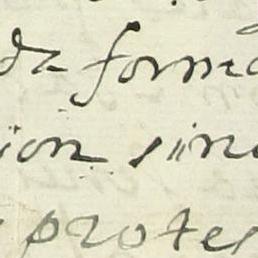 da forma
ion sin
protes